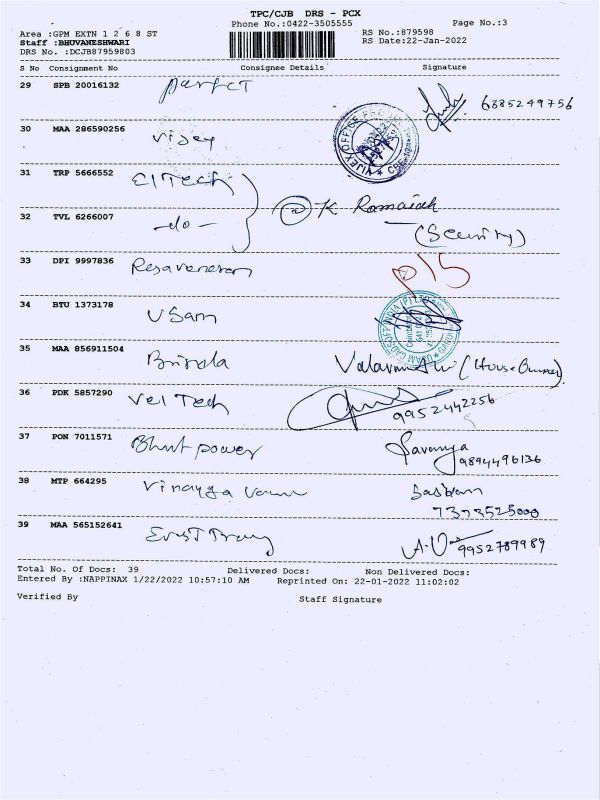 TPC/CJB DRS - PCX
Phone No.:0422-3505555
Page No.:3
Area :GPM EXTN 1 2 6 8 ST
RS No.:879598
Staff :BHUVANESHWARI
RS Date:22-Jan-2022
DRS No. :DCJB87959803
S No Consignment No Consignee Details Signature
29 SPB 20016132 perfect
6385249756
30 MAA 286590256 Vijey
VIJEY OFFICE CBE
31 TRP 5666552 ElTech
K Ramaiah
32 TVL 6266007 -do-
(Security)
33 DPI 9997836
34 BTU 1373178 USam
USAM CADSOFT INDIA (P) LTD
35 MAA 856911504 Brinda (House Owner)
36 PDK 5857290 Vel Tech
9952442256
37 PON 7011571 Bhut power
9894496136
38 MTP 664295 Vinayga
7373525000
39 MAA 565152641
A.V 9952789989
Total No. Of Docs: 39 Delivered Docs: Non Delivered Docs:
Entered By :NAPPINAX 1/22/2022 10:57:10 AM Reprinted On: 22-01-2022 11:02:02
Verified By Staff Signature